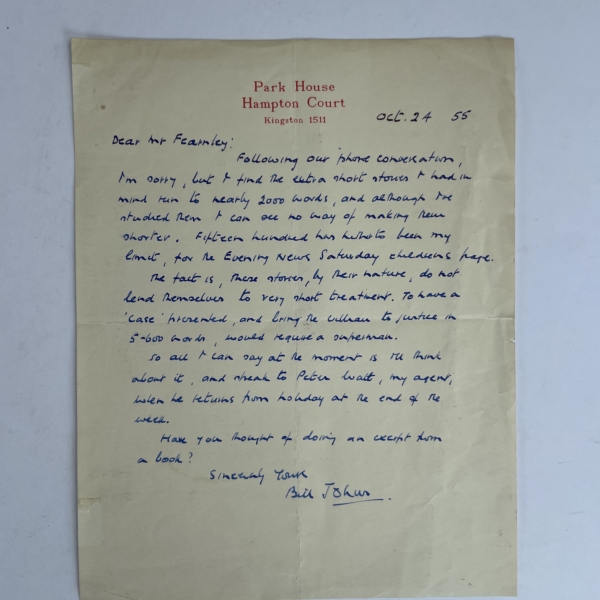 Park House
Hampton Court
Kingston 1511
Oct. 24 55
Dear Mr Fearnley:
Following our 'phone conversation,
I'm sorry, but I find the extra short stories I had in
mind run to nearly 2000 words, and although I've
studied them I can see no way of making them
shorter. Fifteen hundred has hitherto been my
limit, for the Evening News Saturday childrens page.
The fact is, these stories, by their nature, do not
lend themselves to very short treatment. To have a
'case' presented, and bring the villain to justice in
5-600 words, would require a superman.
So all I can say at the moment is I'll think
about it, and speak to Peter Watt, my agent,
when he returns from holiday at the end of the
week.
Have you thought of doing an excerpt from
a book?
Sincerely Yours
Bill Johns.